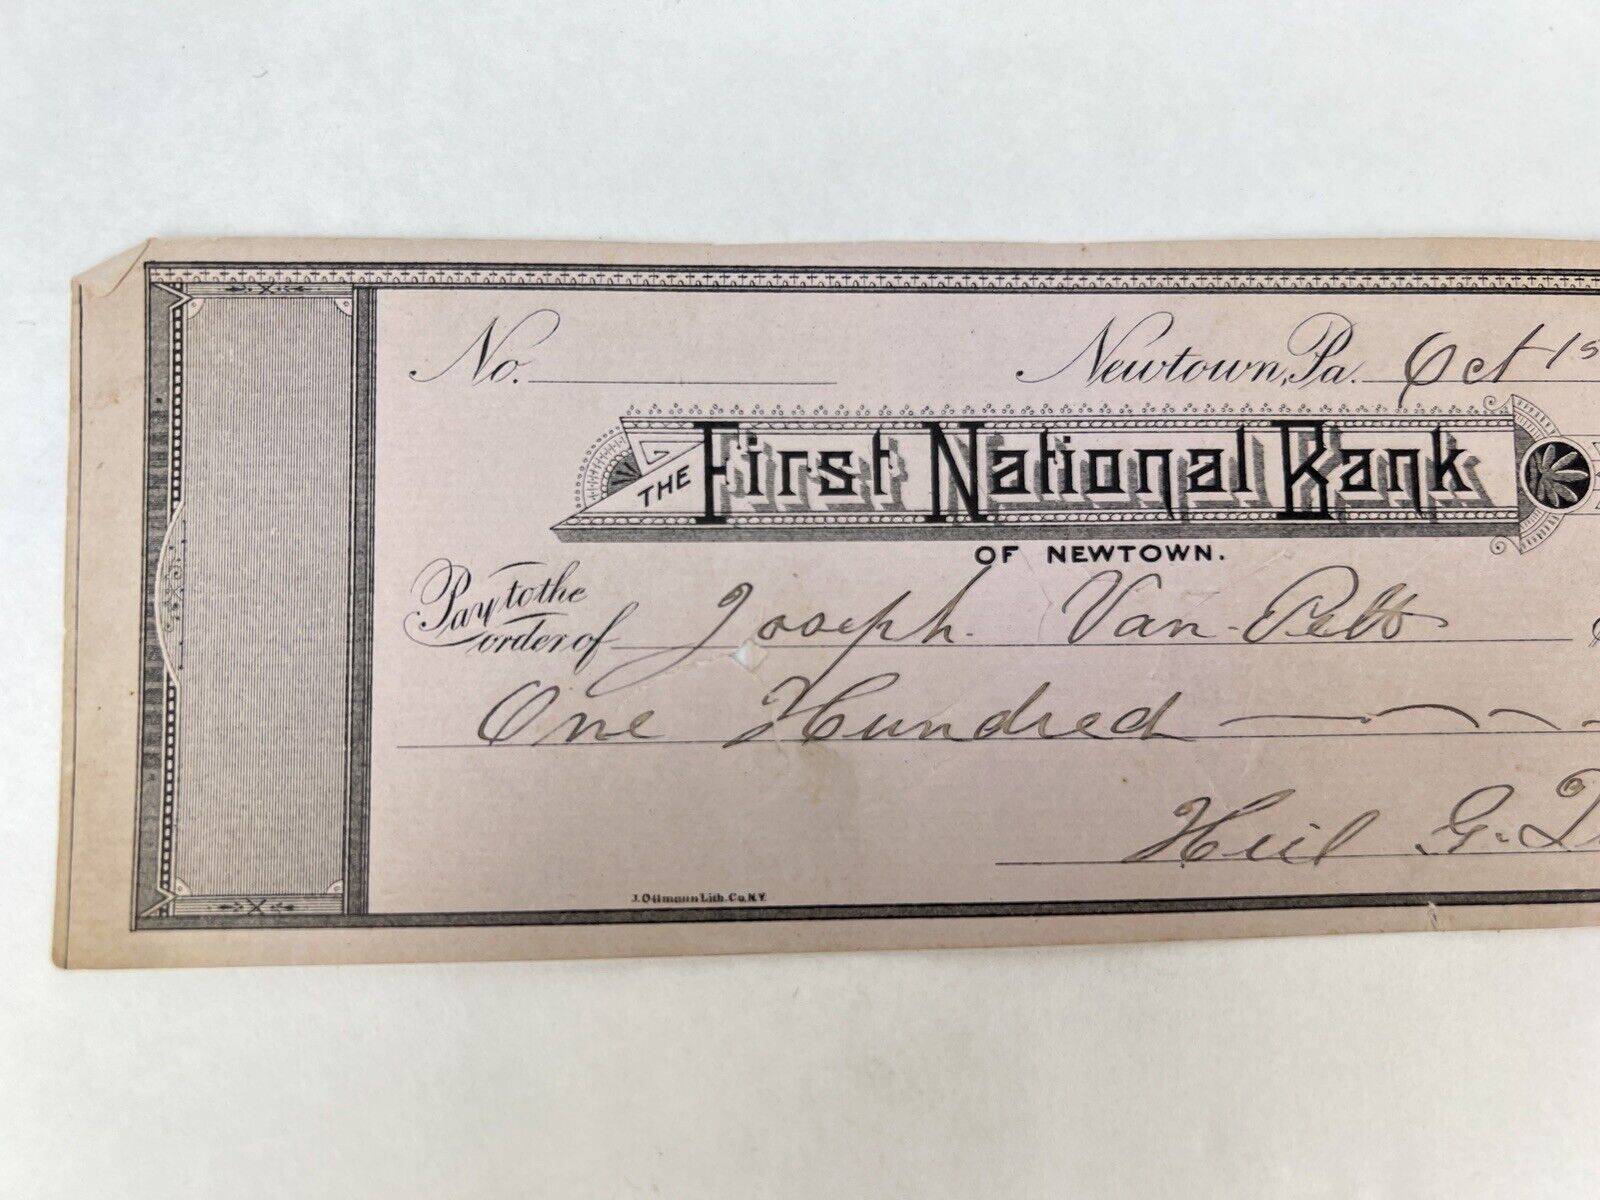 No. Newtown, Pa. Oct 1s
THE First National Bank
OF NEWTOWN.
Pay to the order of Joseph. Van-Pelt
One Hundred
G.
J. Ottmann Lith. Co. N.Y.